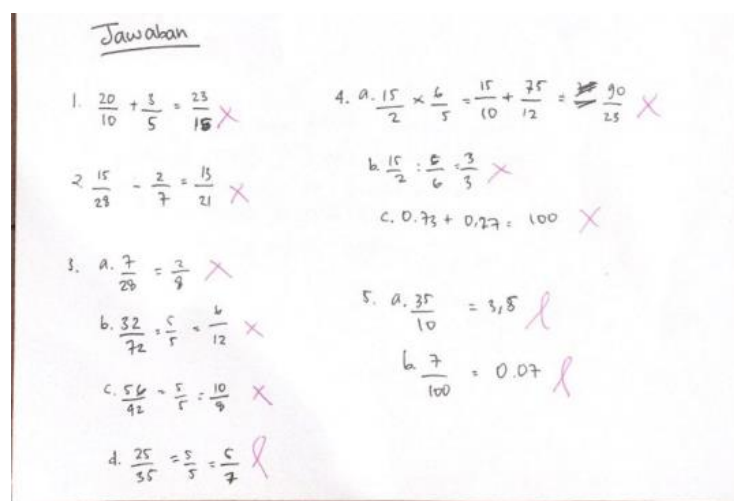 Jawaban
1. 20/10 + 3/5 = 23/15
2. 15/28 - 2/7 = 13/21
3. a. 7/28 = 2/8
b. 32/72 = 5/5 = 6/12
c. 56/42 = 5/5 = 10/8
d. 25/35 = 5/5 = 5/7
4. a. 15/2 × 6/5 = 15/10 + 75/12 = 90/23
b. 15/2 : 6/6 = 3/3
c. 0.73 + 0,27 = 100
5. a. 35/10 = 3,5
b. 7/100 = 0.07